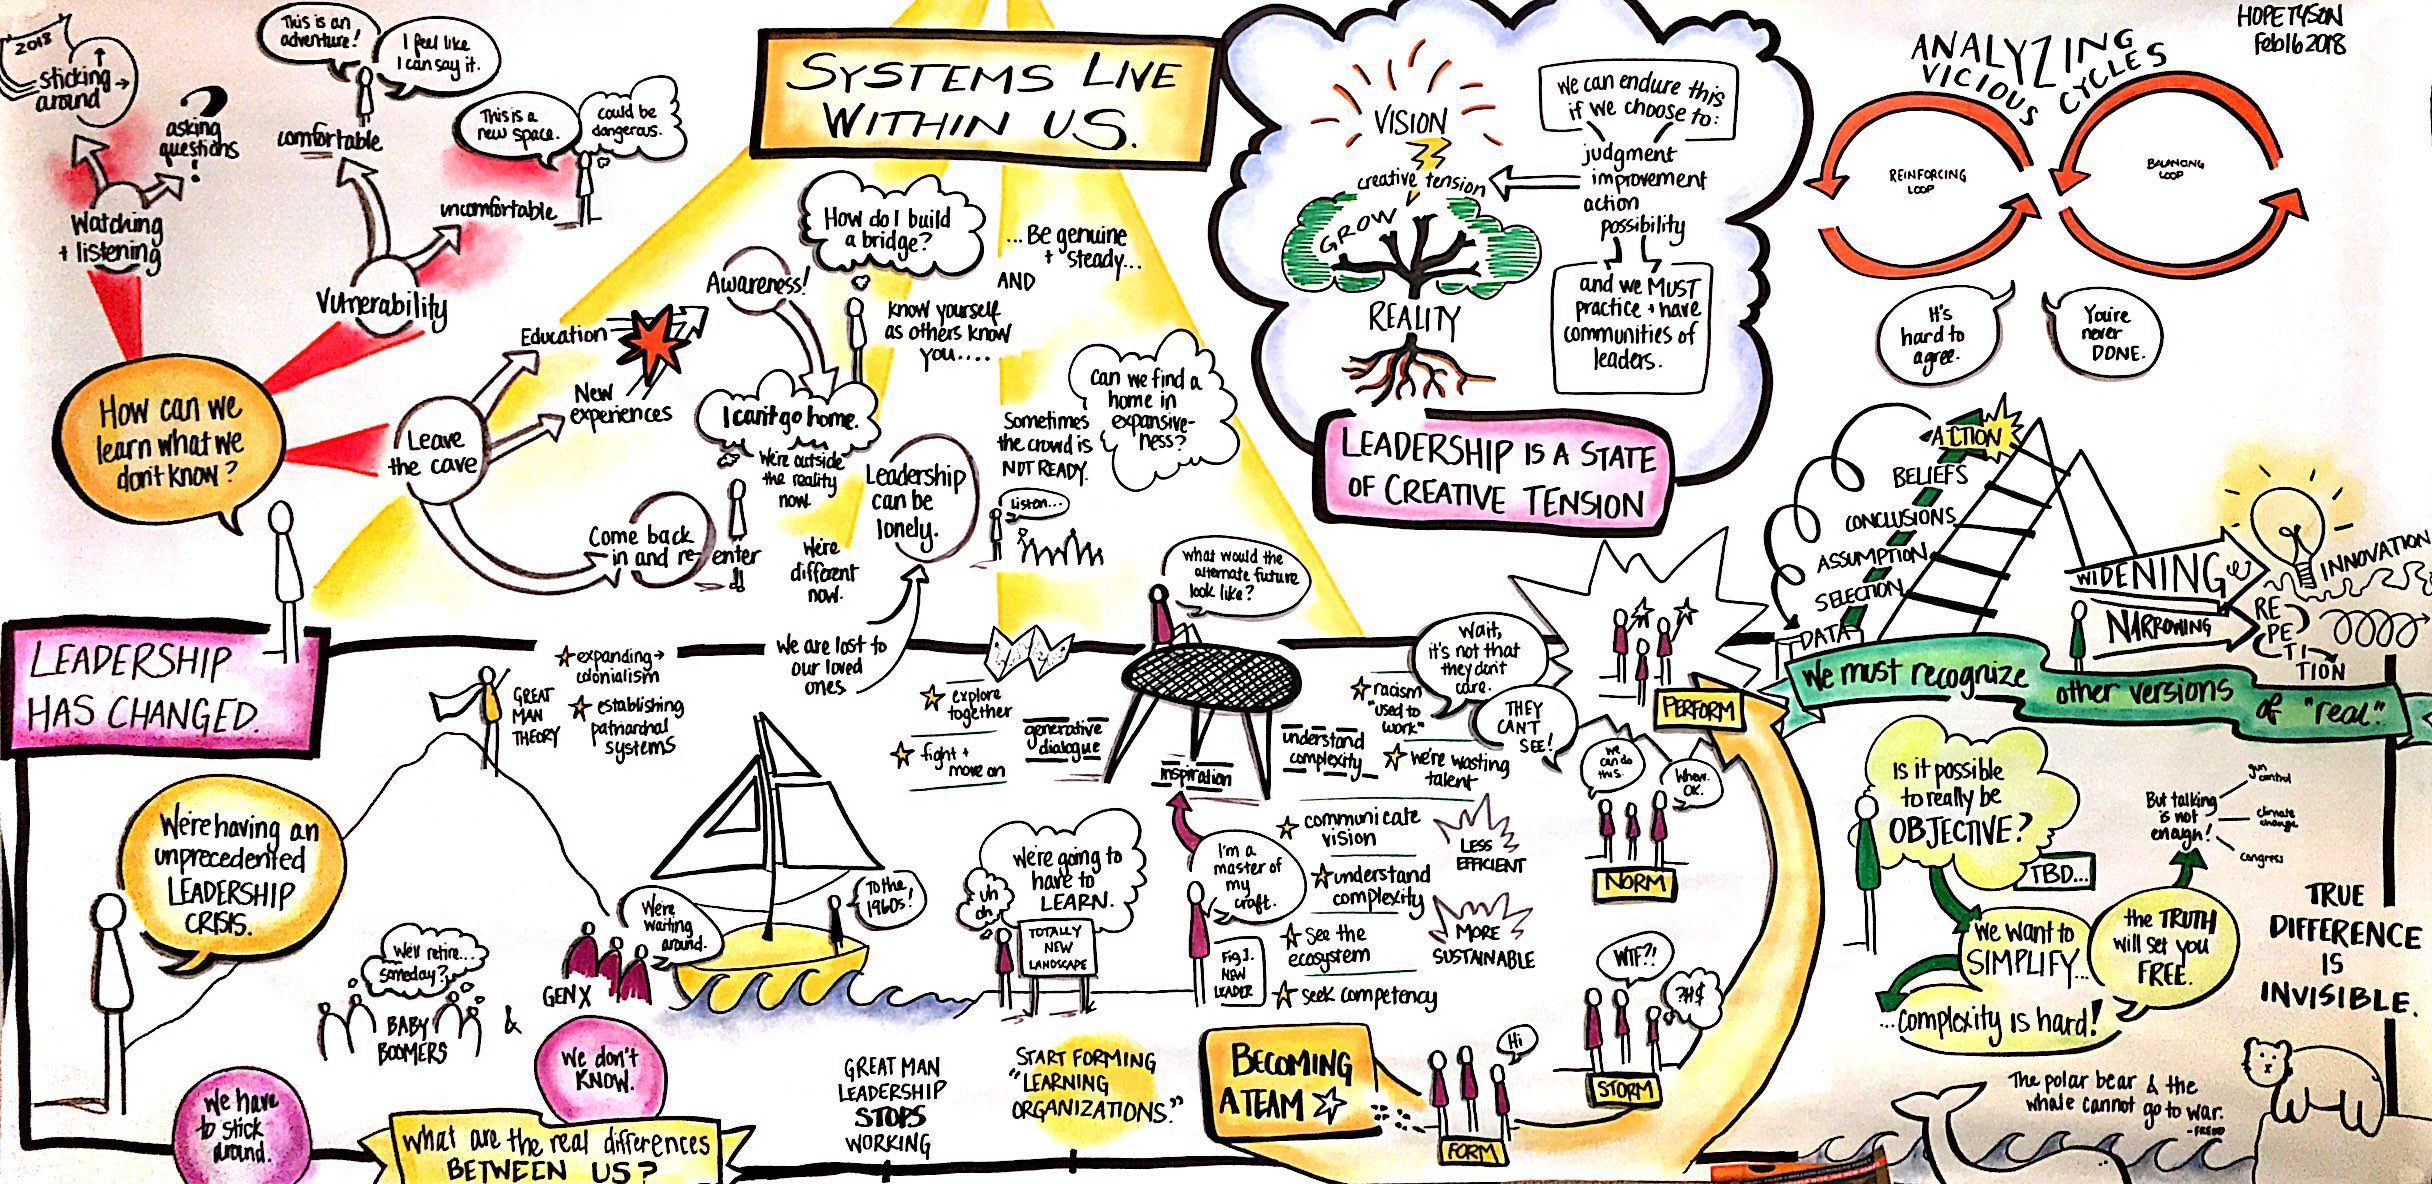 HOPE TYSON
Feb 16 2018
2018
sticking
around
?
asking
questions
Watching
+ listening
This is an
adventure!
I feel like
I can say it.
comfortable
This is a
new space.
could be
dangerous.
uncomfortable
Vulnerability
How can we
learn what we
don't know?
Leave
the cave
Education
New
experiences
Awareness!
How do I build
a bridge?
I can't go home.
We're outside
the reality
now.
Come back
in and re-enter
We're
different
now.
SYSTEMS LIVE
WITHIN US.
...Be genuine
+ steady...
AND
know yourself
as others know
you....
Leadership
can be
lonely.
we are lost to
our loved
ones
Sometimes
the crowd is
NOT READY.
Listen...
Can we find a
home in
expansive-
ness?
VISION
creative tension
GROW
REALITY
we can endure this
if we choose to:
judgment
improvement
action
possibility
and we MUST
practice + have
communities of
leaders.
LEADERSHIP IS A STATE
OF CREATIVE TENSION
ANALYZING
VICIOUS
CYCLES
REINFORCING
LOOP
BALANCING
LOOP
It's
hard to
agree.
You're
never
DONE.
ACTION
BELIEFS
CONCLUSIONS
ASSUMPTION
SELECTION
DATA
WIDENING
INNOVATION
NARROWING
RE
PE
TI
TION
We must recognize other versions of "real".
LEADERSHIP
HAS CHANGED.
We're having an
unprecedented
LEADERSHIP
CRISIS.
GREAT
MAN
THEORY
expanding
colonialism
establishing
patriarchal
systems
We'll retire...
someday?
BABY
BOOMERS
&
GEN X
We're
waiting
around.
To the
1960s!
we have
to stick
around.
we don't
KNOW.
What are the real differences
BETWEEN US?
GREAT MAN
LEADERSHIP
STOPS
WORKING
START FORMING
"LEARNING
ORGANIZATIONS."
uh
oh
We're going to
have to
LEARN.
TOTALLY
NEW
LANDSCAPE
explore
together
fight +
move on
generative
dialogue
what would the
alternate future
look like?
inspiration
understand
complexity
I'm a
master of
my
craft.
Fig 1.
NEW
LEADER
racism
"used to
work"
we're wasting
talent
communicate
vision
understand
complexity
see the
ecosystem
seek competency
LESS
EFFICIENT
MORE
SUSTAINABLE
Wait,
it's not that
they don't
care.
THEY
CAN'T
SEE!
BECOMING
A TEAM
Hi
FORM
WTF?!
?#$
STORM
we
can do
this.
Whew.
OK.
NORM
PERFORM
Is it possible
to really be
OBJECTIVE?
TBD...
we want to
SIMPLIFY...
...complexity is hard!
the TRUTH
will set you
FREE.
But talking
is not
enough!
gun
control
climate
change
congress
TRUE
DIFFERENCE
IS
INVISIBLE.
The polar bear & the
whale cannot go to war.
-FREUD